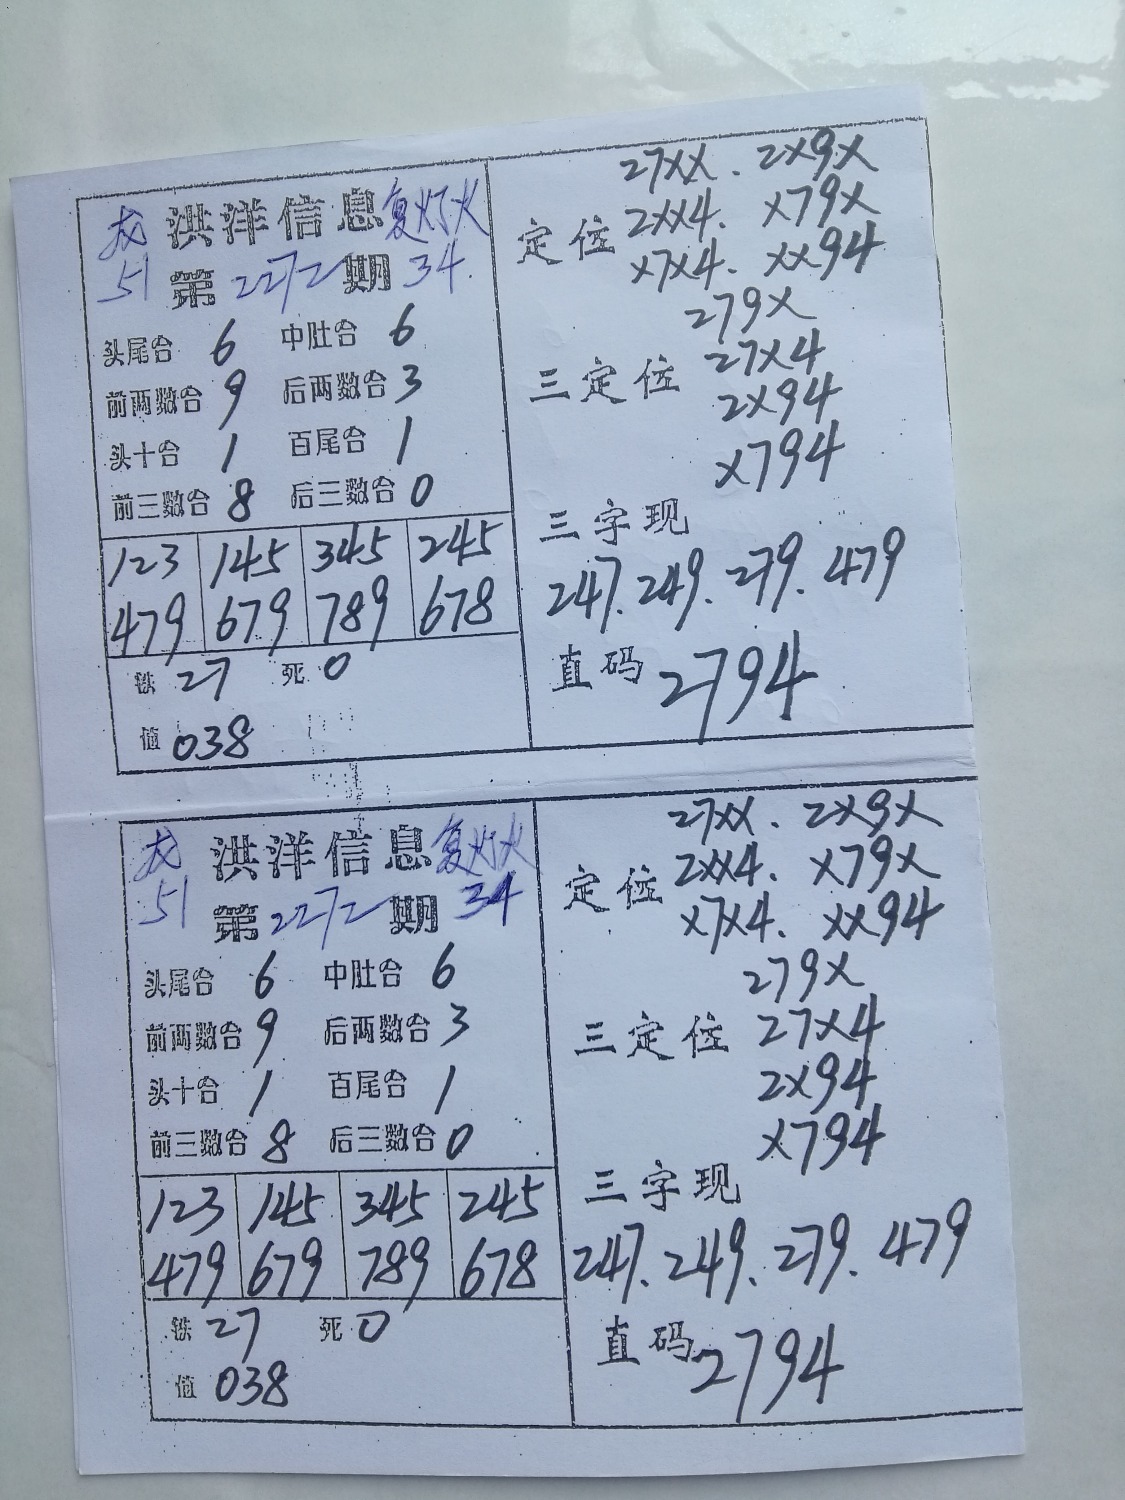 龙 洪洋信息 复灯火
51 第2272期 34
头尾合 6 中肚合 6
前两数合 9 后两数合 3
头十合 1 百尾合 1
前三数合 8 后三数合 0
123 145 345 245
479 679 789 678
铁 27 死 0
值 038
27XX. 2X9X
定位 2XX4. X79X
X7X4. XX94
279X
三定位 27X4
2X94
X794
三字现
247. 249. 279. 479
直码 2794
龙 洪洋信息 复灯火
51 第2272期 34
头尾合 6 中肚合 6
前两数合 9 后两数合 3
头十合 1 百尾合 1
前三数合 8 后三数合 0
123 145 345 245
479 679 789 678
铁 27 死 0
值 038
27XX. 2X9X
定位 2XX4. X79X
X7X4. XX94
279X
三定位 27X4
2X94
X794
三字现
247. 249. 279. 479
直码 2794